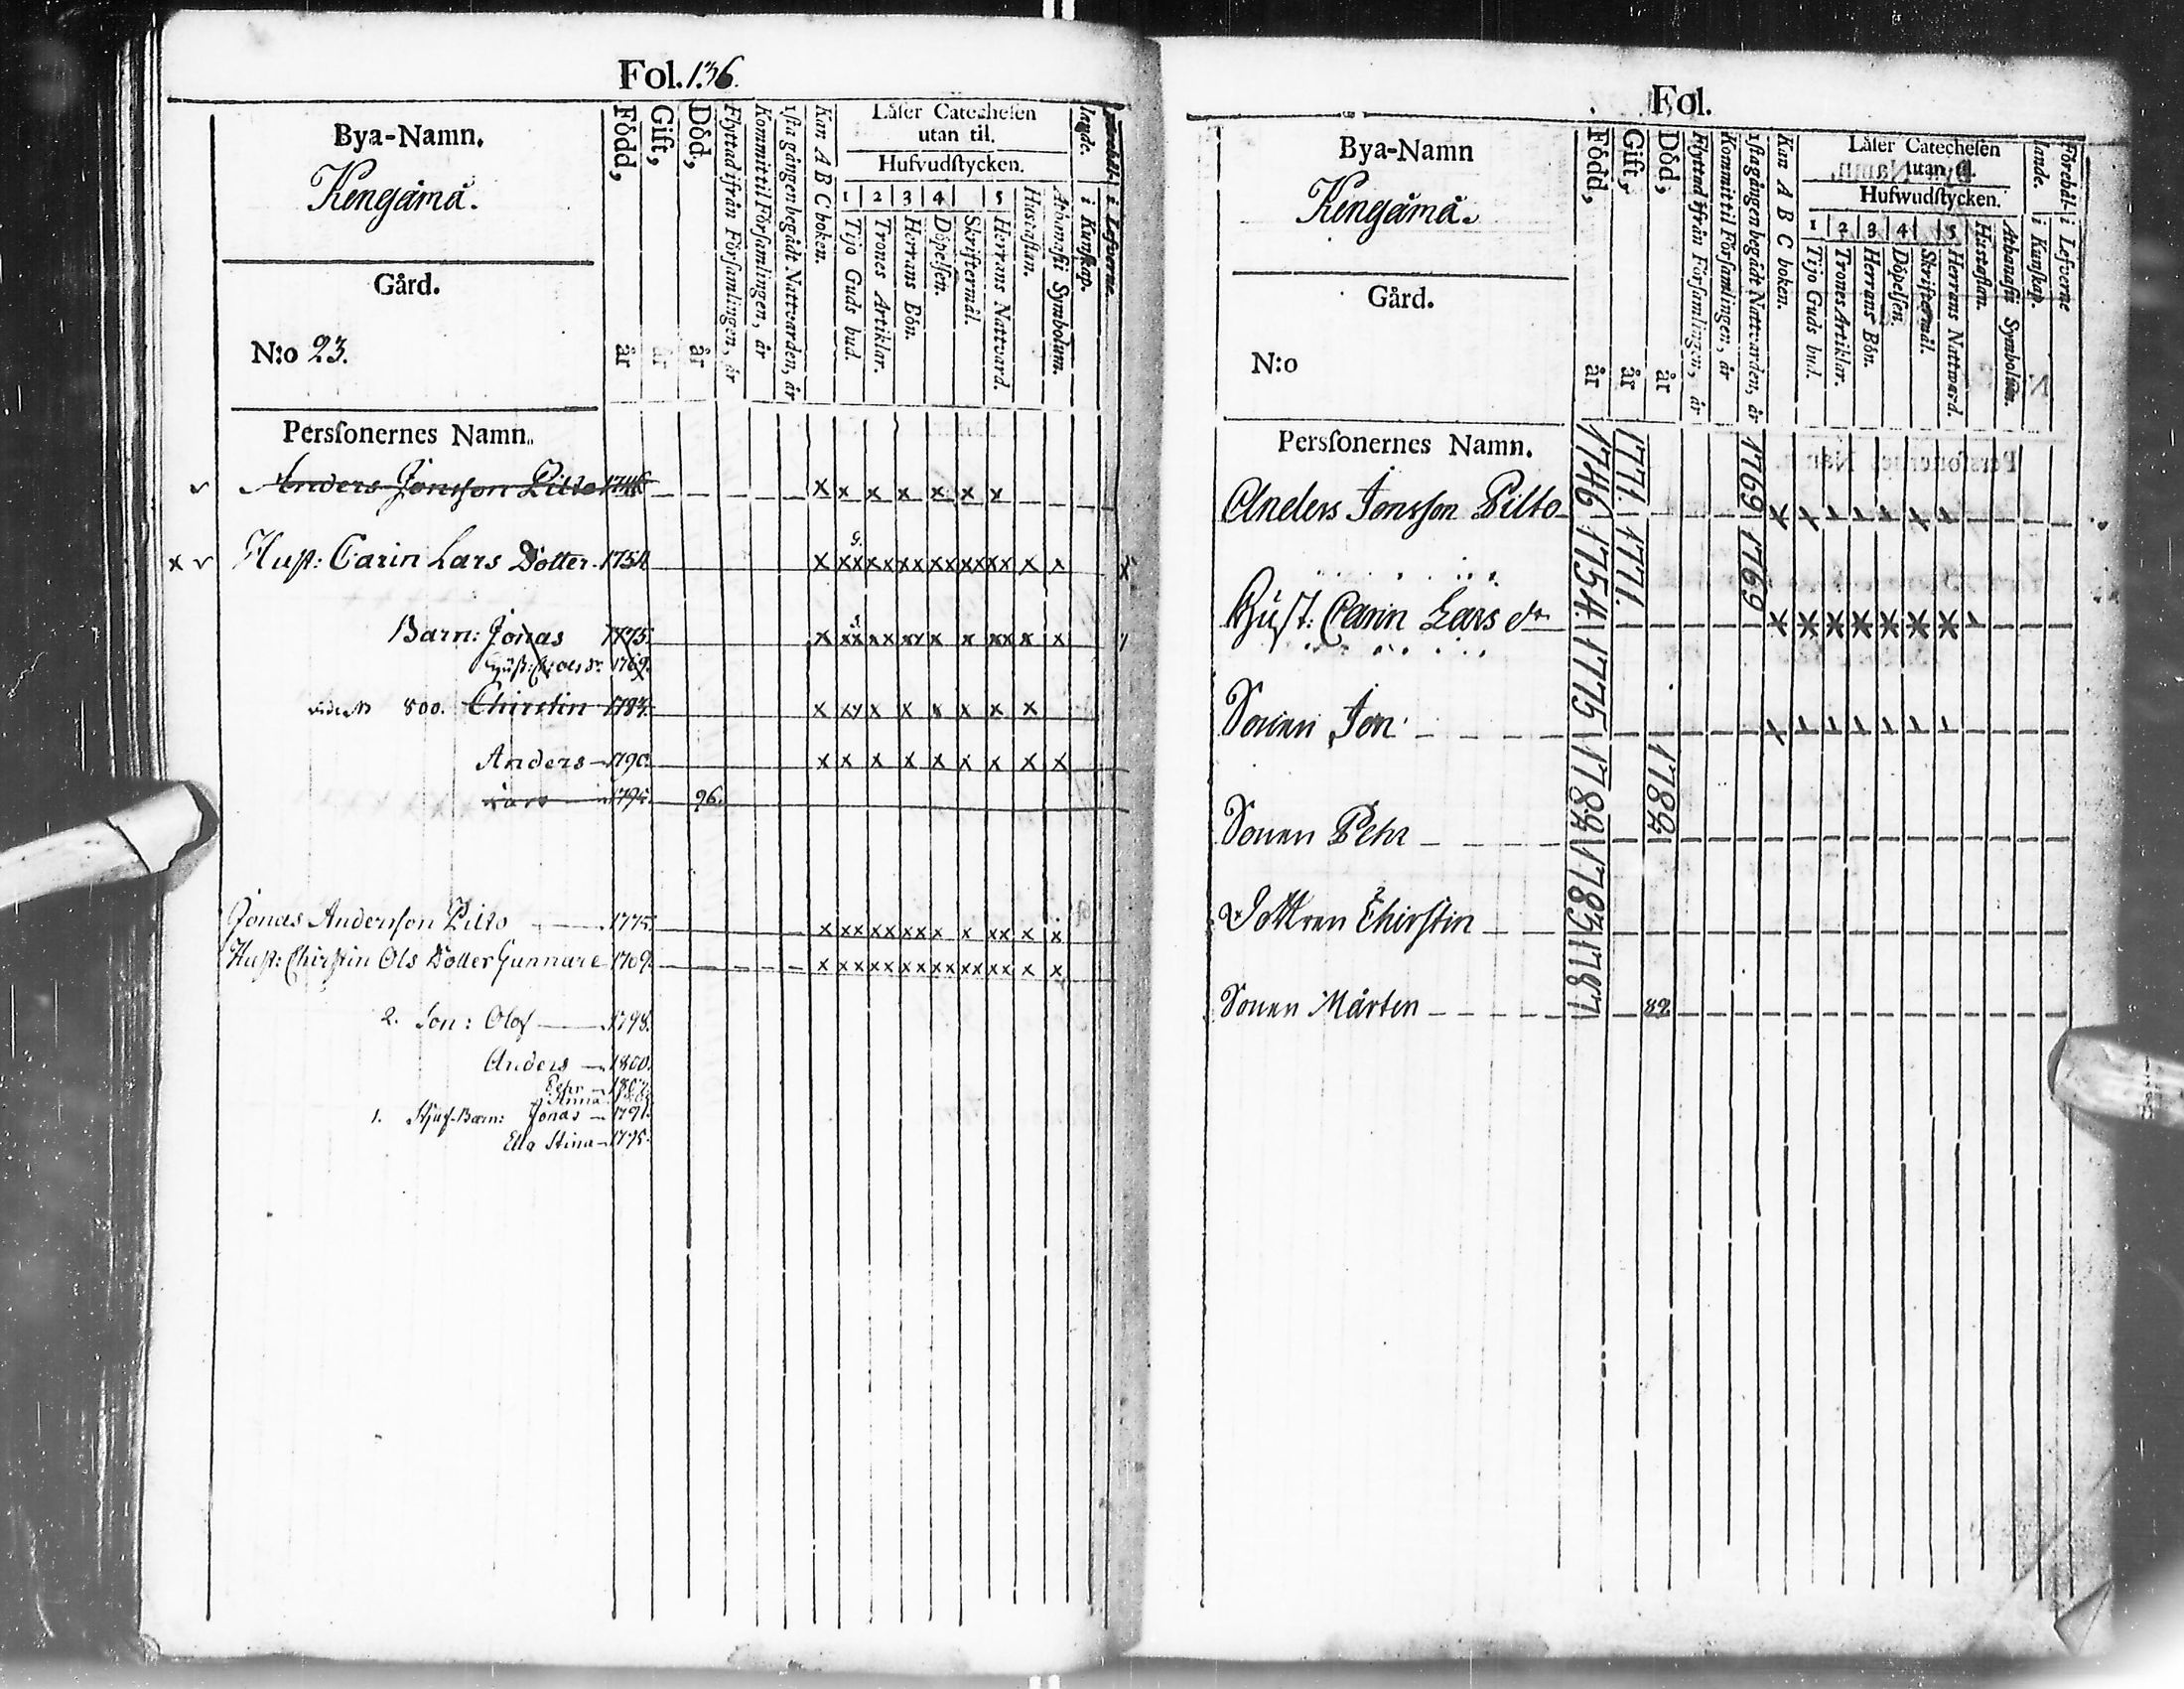 Fol. 136.
Bya-Namn.
Kengämä.
Gård.
N:o 23.
Personernes Namn.
Född, år
Gift, år
Död, år
Flyttad ifrån Församlingen, år
Kommit til Församlingen, år
1sta gången begådt Nattvarden, år
Kan A B C boken.
Läser Catechesen
utan til.
Hufvudstycken.
1 2 3 4 5
Tijo Guds bud.
Trones Artiklar.
Herrans Bön.
Döpelsen.
Skriftermål.
Herrans Nattvard.
Hustaflan.
Athanasii Symbolum.
lande. i Kunskap.
i Lefverne.
Anders Jonsson Pilto 1746 x x x x x x x
x v Hust: Carin Lars Dotter 1754 x xx xx xx xx xx xx x x
Barn: Jonas 1775. x xx xx xx x x xx x x
1769.
800. Chirstin 1783. x xx x x x x x x
Anders 1790. x x x x x x x x x
Lars 1795. 96.
Jonas Andersson Pilto 1775. x xx xx xx x x xx x x
Hust: Chirstin Ols Dotter Gunnare 1769. x xx xx xx xx xx xx x x
2. Son: Olof 1798.
Anders 1800.
Pehr
Anna
1. Stjuf-Barn: Jonas 1791.
Ella Stina 1795.
Fol.
Bya-Namn
Kengämä.
Gård.
N:o
Personernes Namn.
Född, år
Gift, år
Död, år
Flyttad ifrån Församlingen, år
Kommit til Församlingen, år
1sta gången begådt Nattvarden, år
Kan A B C boken.
Läser Catechesen
utan til.
Hufwudstycken.
1 2 3 4 5
Tijo Guds bud.
Trones Artiklar.
Herrans Bön.
Döpelsen.
Skriftermål.
Herrans Nattvard.
Hustaflan.
Athanasii Symbolum.
Förehål-
lande. i Kunskap.
i Lefverne
Anders Jonsson Pilto 1746 1771. 1769
Hust: Carin Lars dr 1754 1771. 1769
Sonen Jon 1775
Sonen Pehr 1782 1782
Dottren Chirstin 1783
Sonen Mårten 1787 89